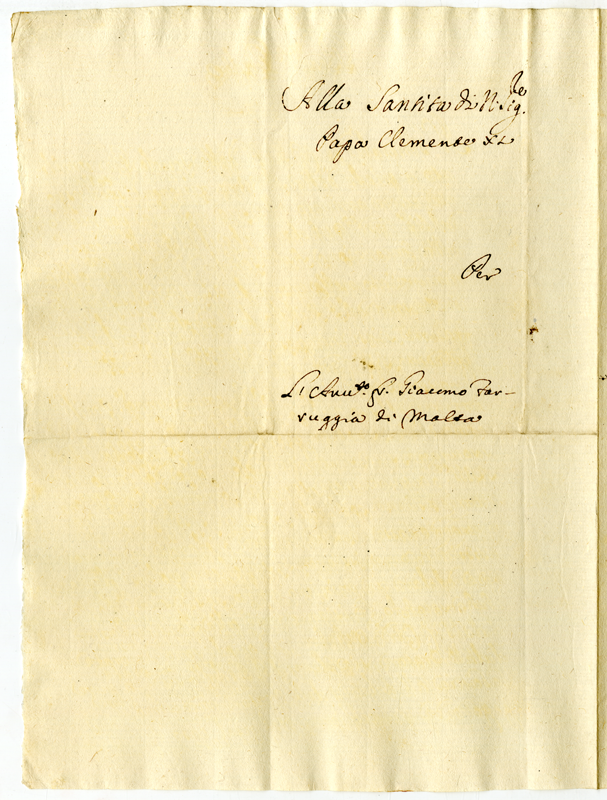 Alla Santita di N. Sig.re
Papa Clemente XI
Per
Giacomo Far-
ruggia di Malta